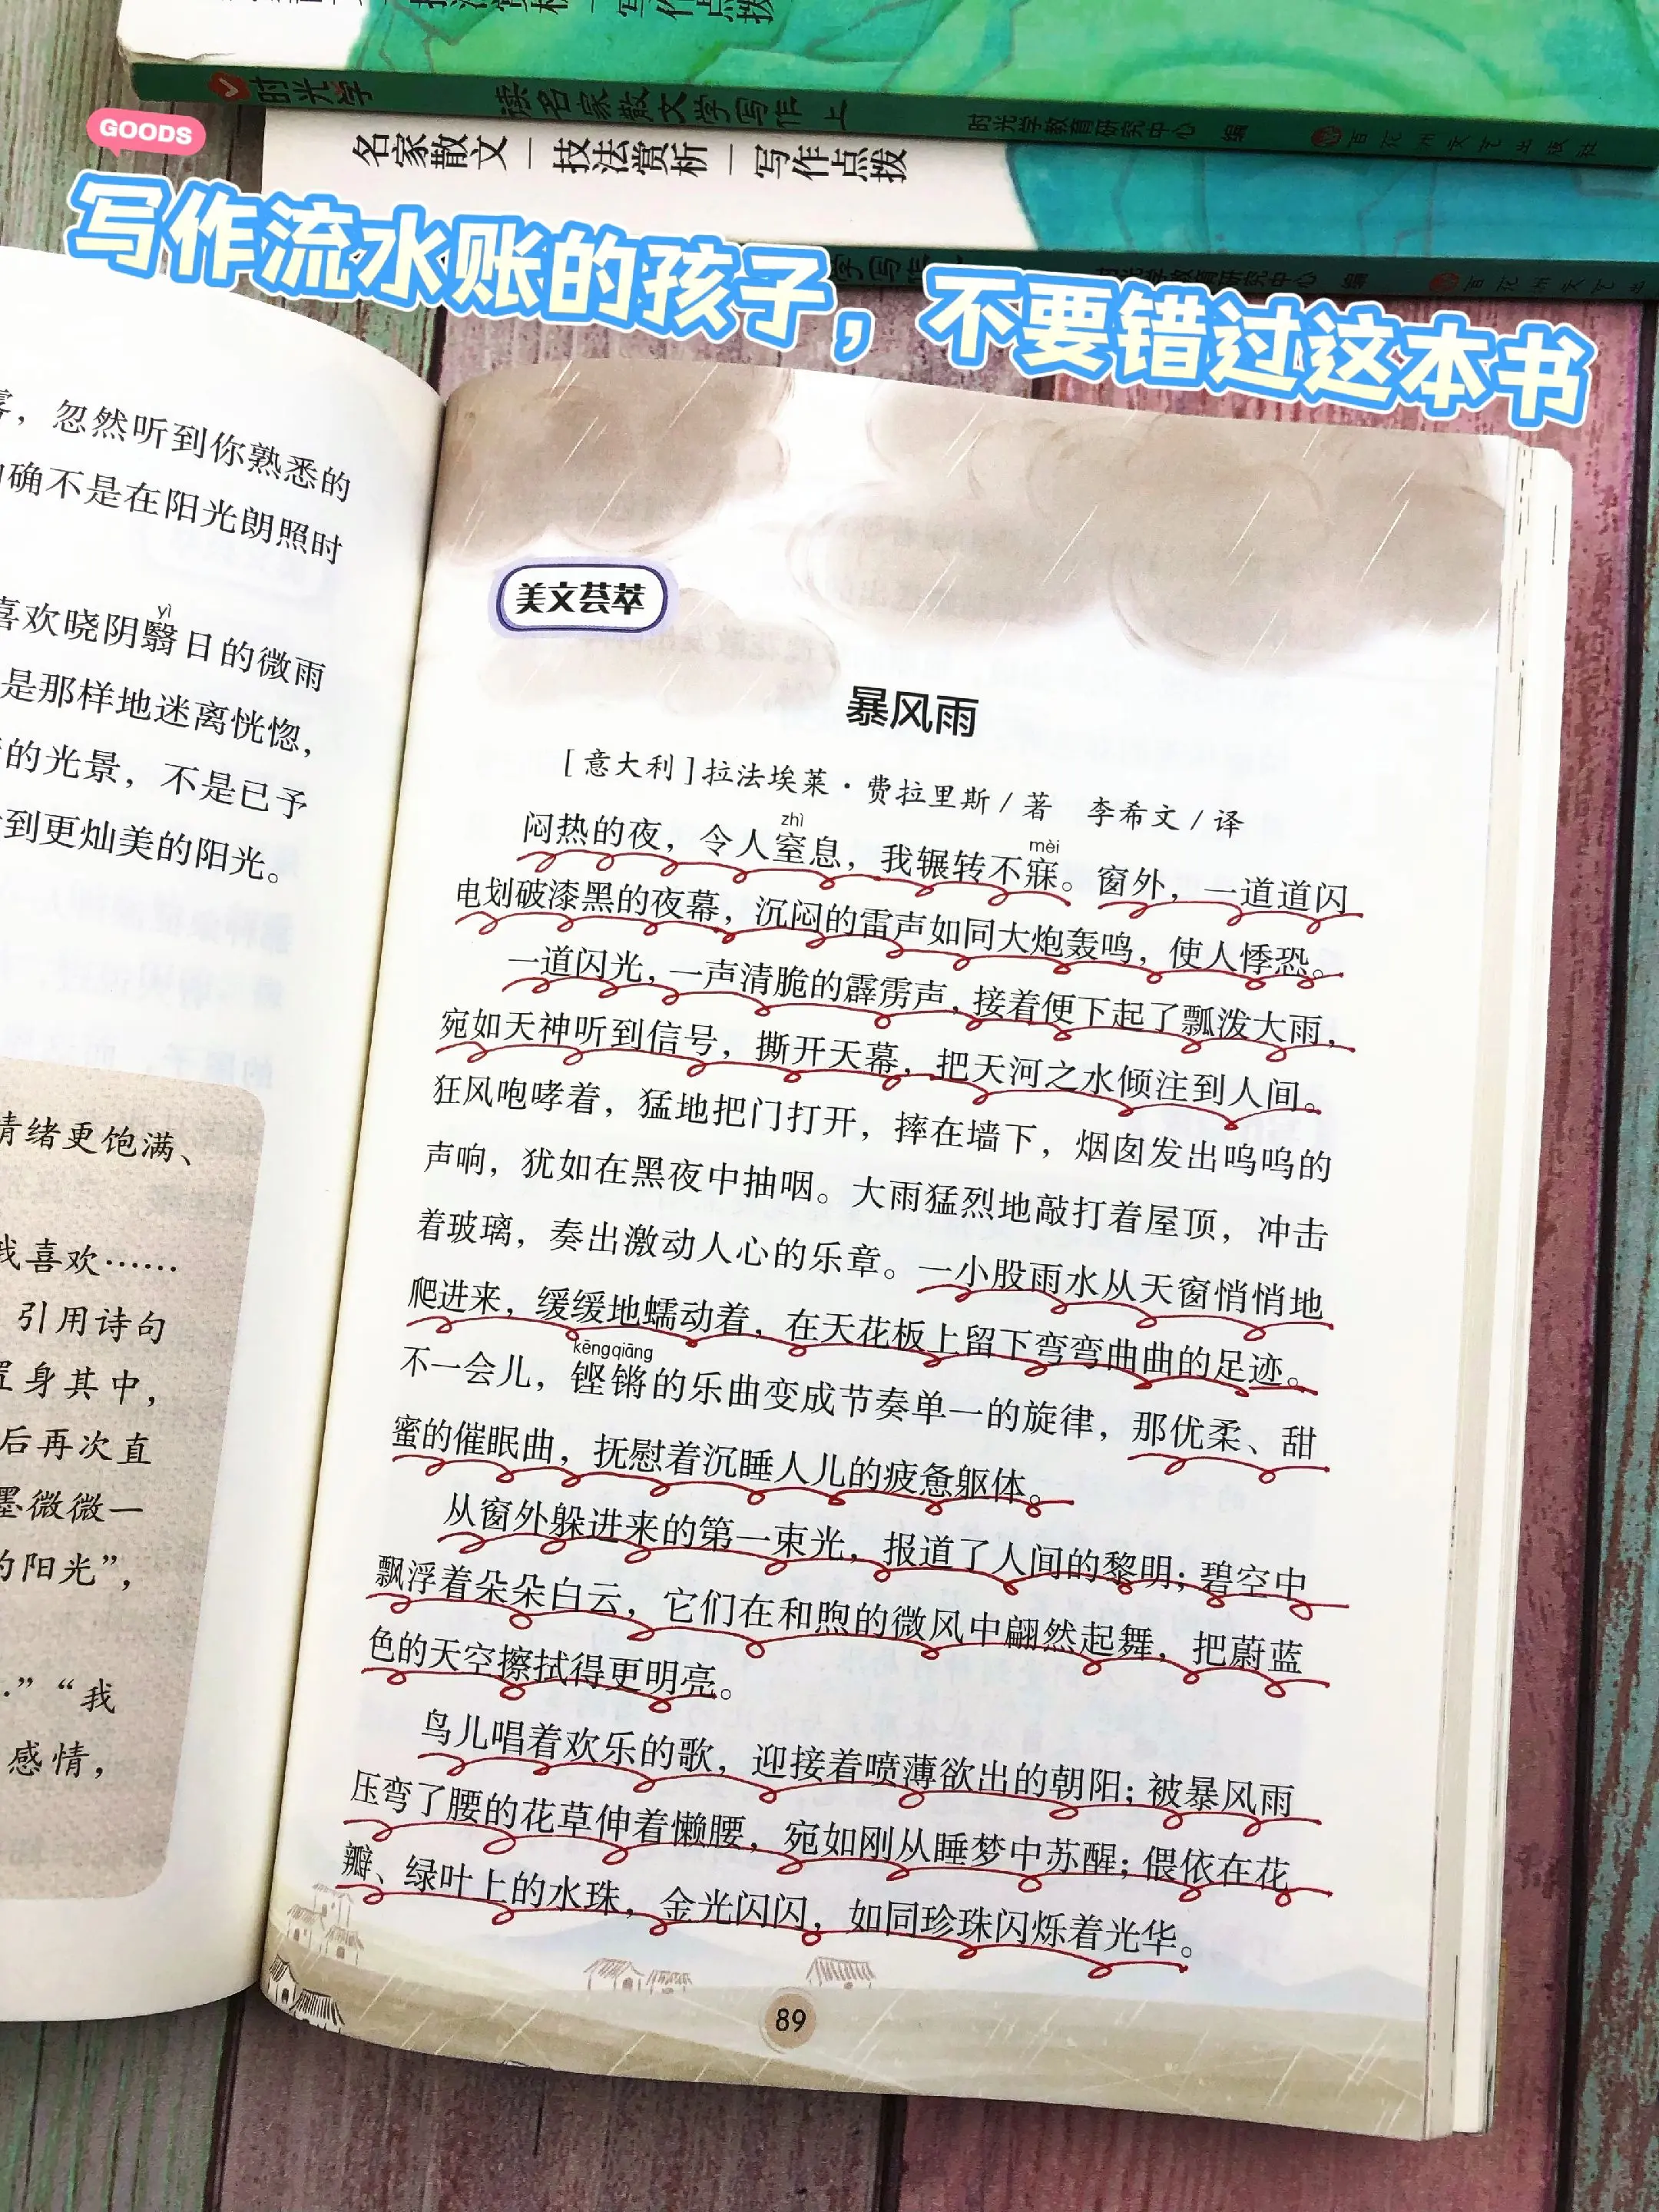 时光学 读名家散文学写作 上 时光学教育研究中心 编 百花洲文艺出版社
GOODS
名家散文—技法赏析—写作点拨
写作流水账的孩子，不要错过这本书
时光学教育研究中心 编
，忽然听到你熟悉的
确不是在阳光朗照时
yì
喜欢晓阴翳日的微雨
是那样地迷离恍惚，
的光景，不是已予
到更灿美的阳光。
情绪更饱满、
我喜欢……
引用诗句
置身其中，
后再次直
墨微微一
的阳光”，
”“我
感情，
美文荟萃
暴风雨
[意大利]拉法埃莱·费拉里斯/著 李希文/译
zhì
mèi
闷热的夜，令人窒息，我辗转不寐。窗外，一道道闪
电划破漆黑的夜幕，沉闷的雷声如同大炮轰鸣，使人悸恐。
一道闪光，一声清脆的霹雳声，接着便下起了瓢泼大雨，
宛如天神听到信号，撕开天幕，把天河之水倾注到人间。
狂风咆哮着，猛地把门打开，摔在墙下，烟囱发出呜呜的
声响，犹如在黑夜中抽咽。大雨猛烈地敲打着屋顶，冲击
着玻璃，奏出激动人心的乐章。一小股雨水从天窗悄悄地
爬进来，缓缓地蠕动着，在天花板上留下弯弯曲曲的足迹。
kēng qiāng
不一会儿，铿锵的乐曲变成节奏单一的旋律，那优柔、甜
蜜的催眠曲，抚慰着沉睡人儿的疲惫躯体。
从窗外躲进来的第一束光，报道了人间的黎明；碧空中
飘浮着朵朵白云，它们在和煦的微风中翩然起舞，把蔚蓝
色的天空擦拭得更明亮。
鸟儿唱着欢乐的歌，迎接着喷薄欲出的朝阳；被暴风雨
压弯了腰的花草伸着懒腰，宛如刚从睡梦中苏醒；偎依在花
瓣、绿叶上的水珠，金光闪闪，如同珍珠闪烁着光华。
89